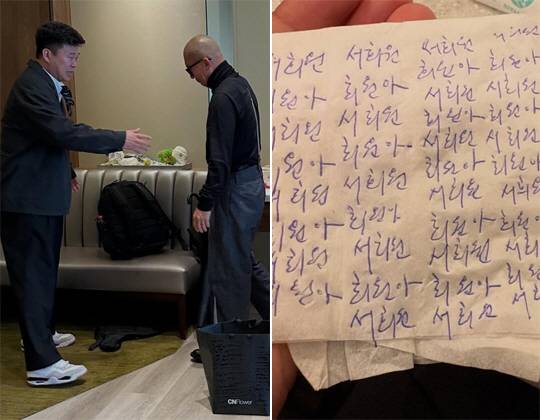 희원 서희원 서희원 서희원
원아 희원아 희원아 희원아
희원 서희원 서희원 서희원
원아 희원아 희원아 희원아
희원 서희원 서희원 서희원
원아 희원아 희원아 희원아
희원 서희원 서희원 서희
원아 희원아 희원아 희원아
서희원 서희원 서희
희원아 희원
서희원 서희원 서
CNFlower